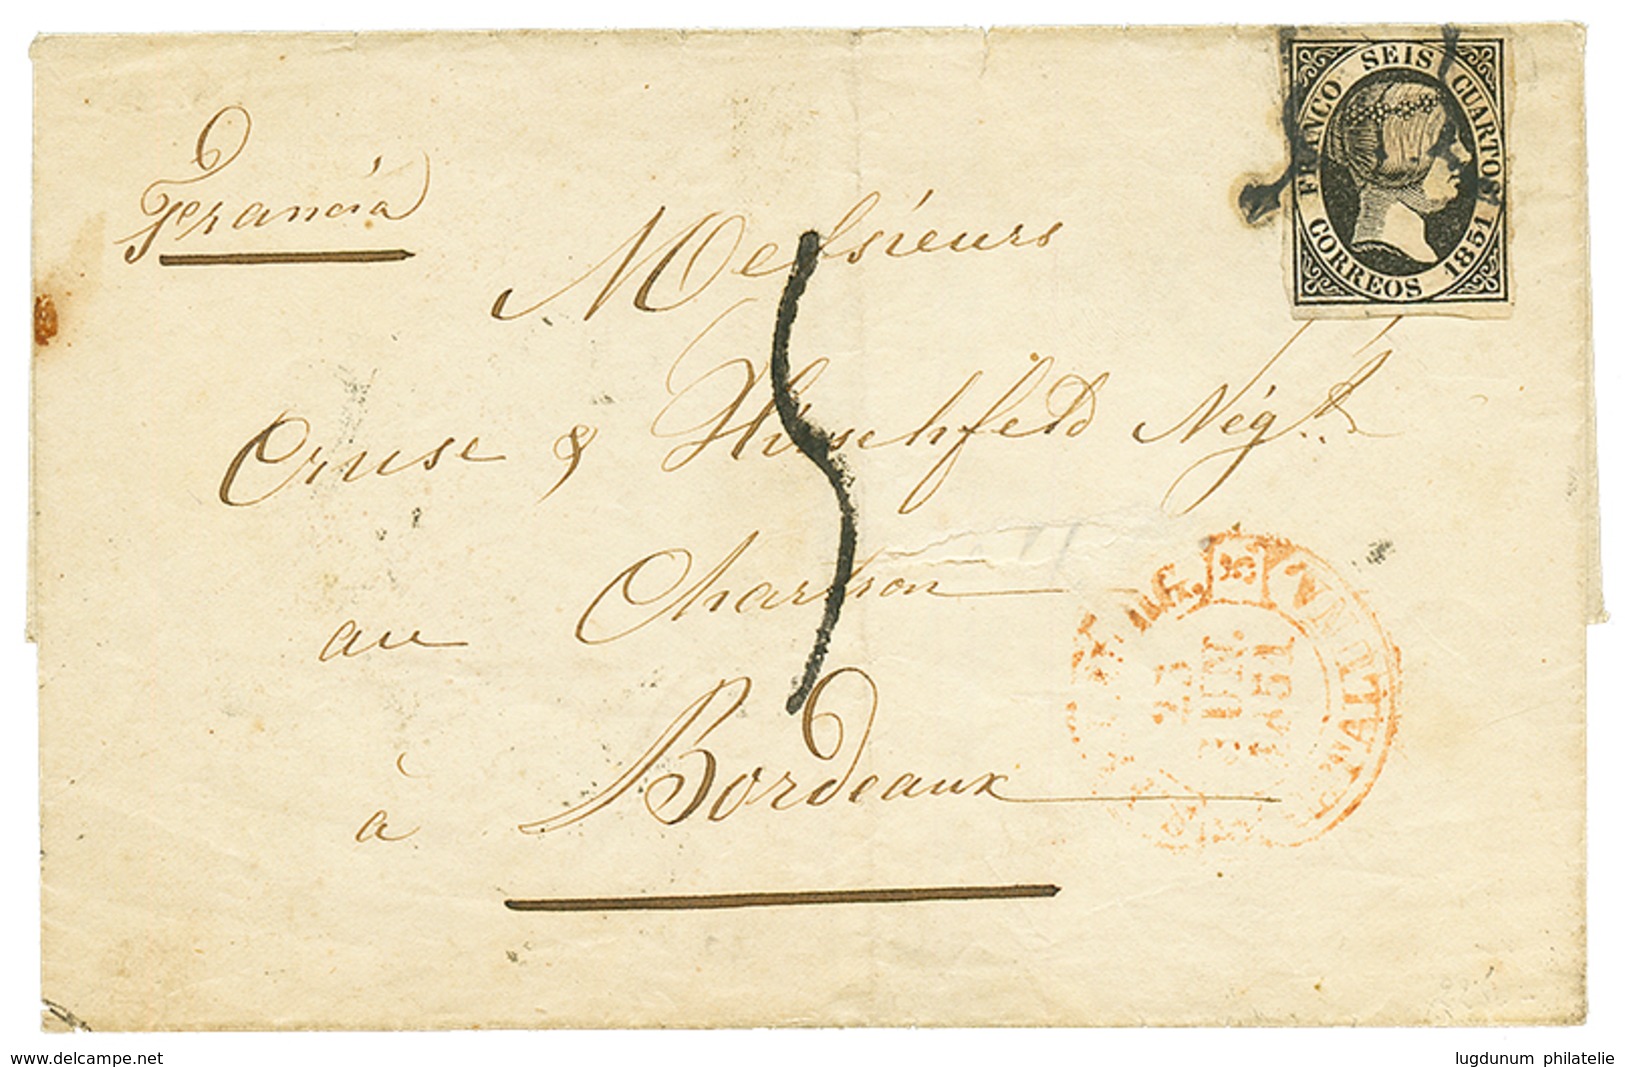 Francia
FRANCO SEIS CUARTOS
CORREOS 1851
Messieurs
Cruse & Hirschfeld Nég.ts
au Chartron
à Bordeaux
5
23
JUN.
1851
www.delcampe.net
lugdunum philatelie